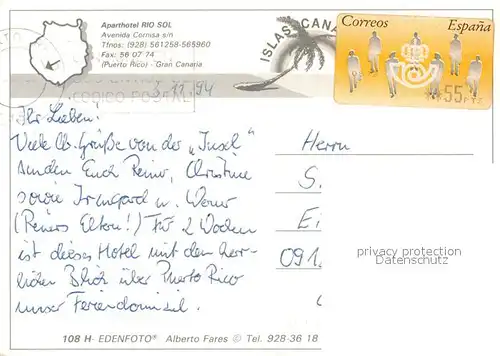 Aparthotel RIO SOL
Avenida Cornisa s/n
Tfnos: (928) 561258-565960
Fax: 56 07 74
(Puerto Rico) - Gran Canaria
ISLAS CANA
Correos España
55 PTS
CODIGO POSTAL
11.94
Ihr Lieben!
Viele lb. Grüße von der „Insel"
senden Euch Reiner, Christine
sowie Irmgard u. Werner
(Reiners Eltern!) Für 2 Wochen
ist dieses Hotel mit dem herr-
lichen Blick über Puerto Rico
unser Feriendomizil.
Herrn
S.
Ei
091
privacy protection
Datenschutz
108 H- EDENFOTO® Alberto Fares © Tel. 928-36 18